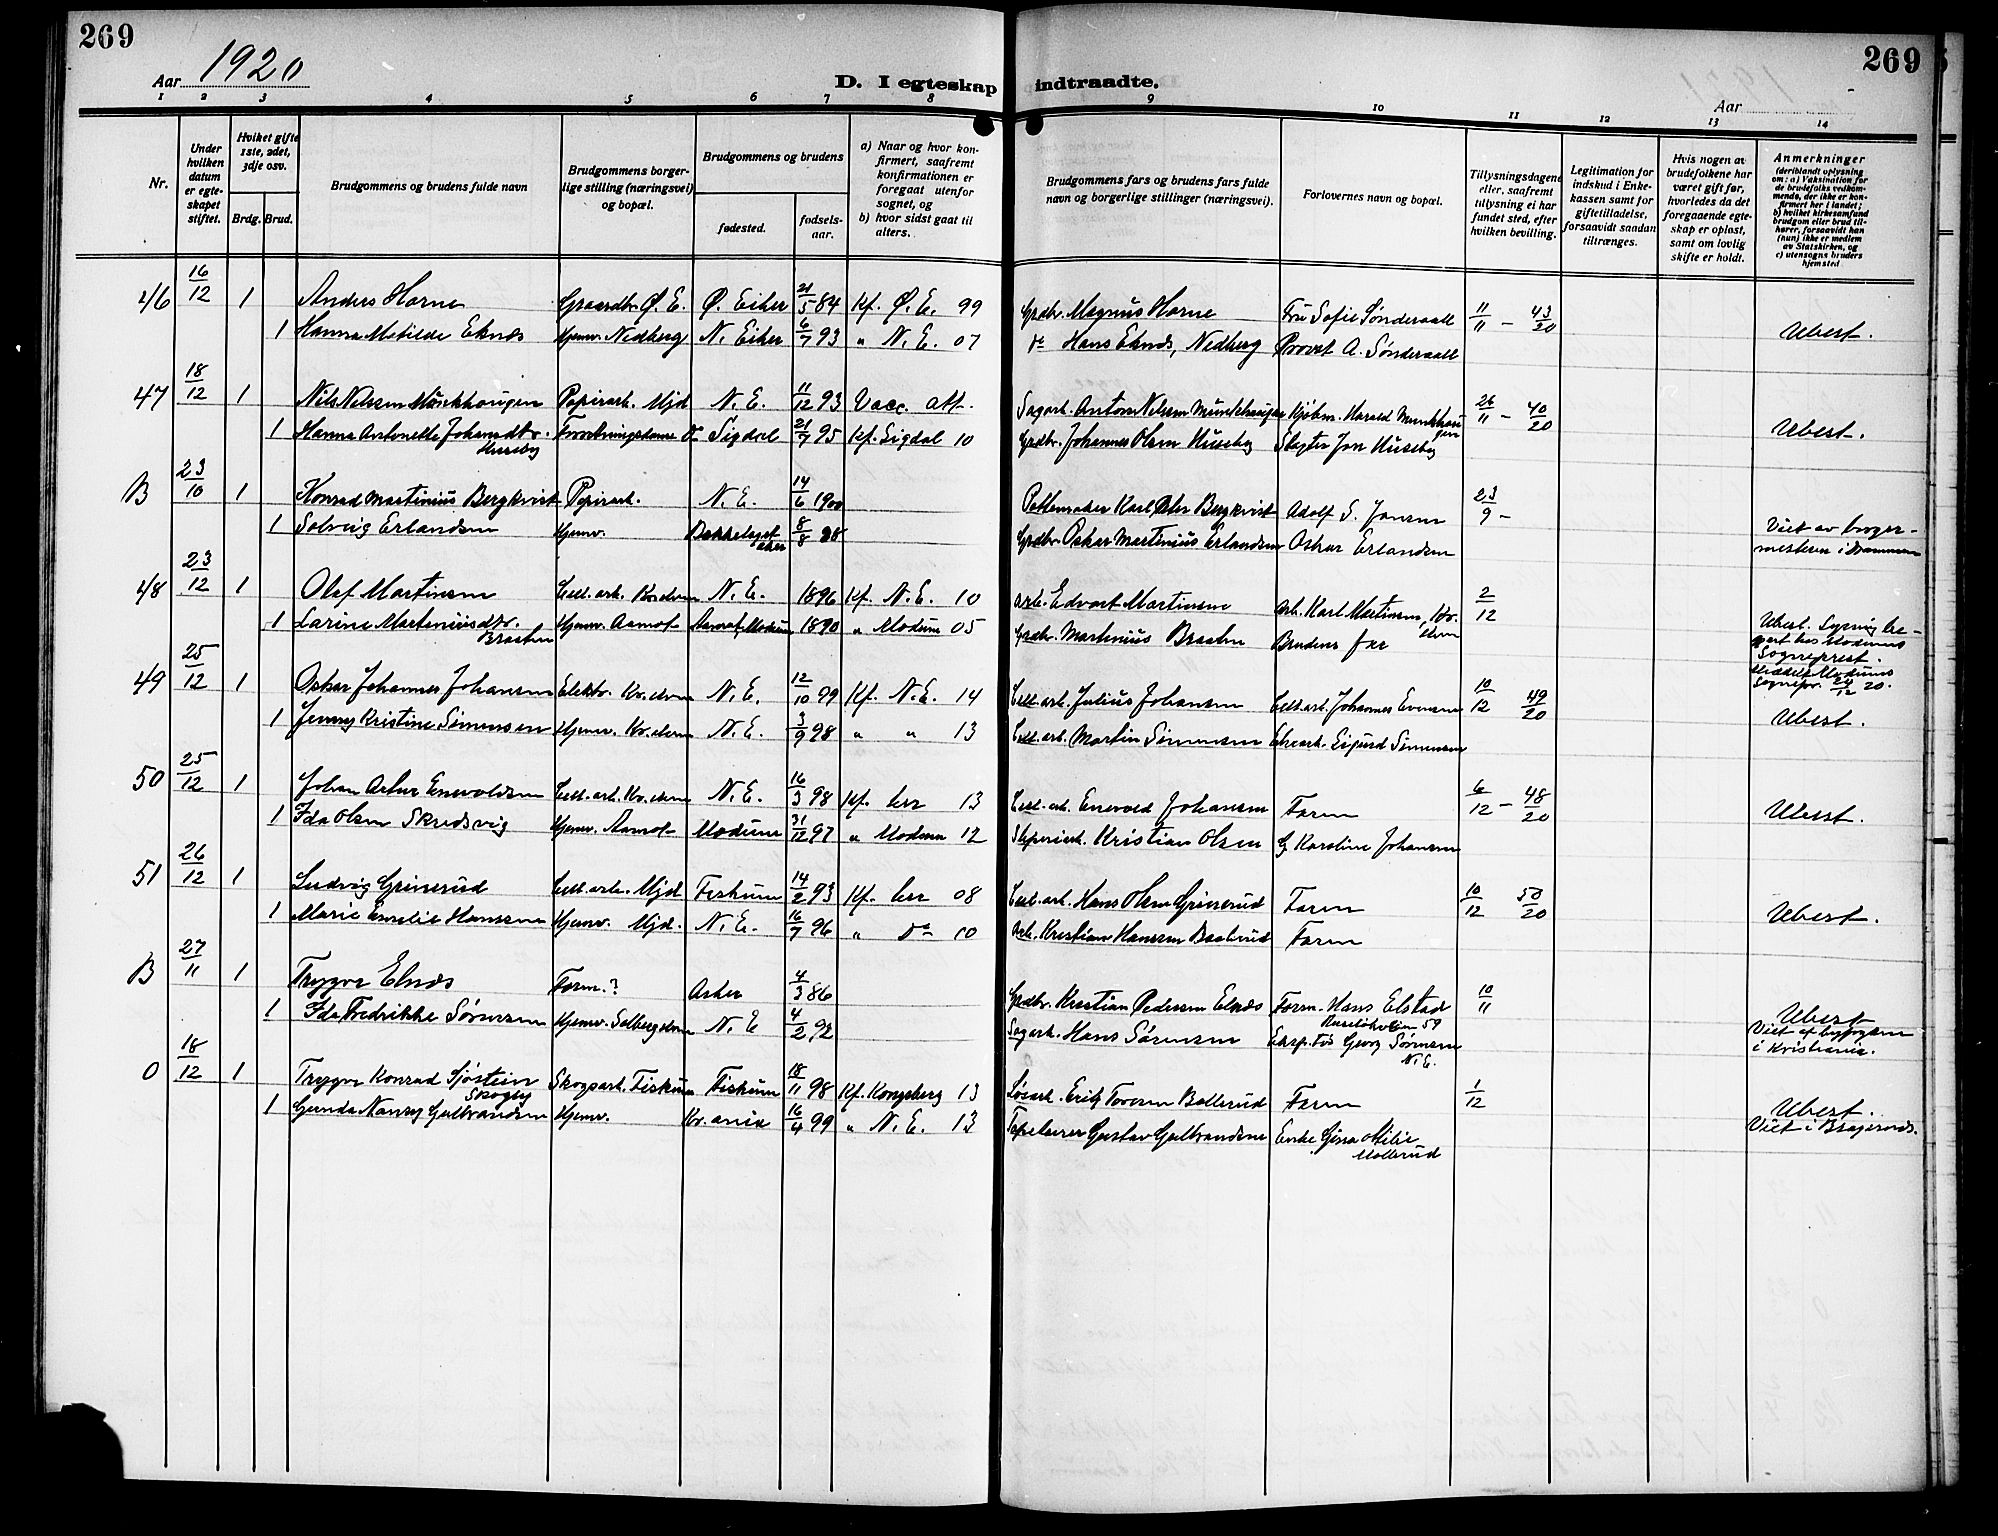 269
Aar 1920
D. I egteskap indtraadte.
269
Aar
1 2 3 4 5 6 7 8 9 10 11 12 13 14
Nr.
Under hvilken datum er egteskapet stiftet.
Hvilket gifte 1ste, 2det, 3dje osv.
Brdg. Brud.
Brudgommens og brudens fulde navn
Brudgommens borgerlige stilling (næringsvei) og bopæl.
Brudgommens og brudens
fødested.
fødselsaar.
a) Naar og hvor konfirmert, saafremt konfirmationen er foregaat utenfor sognet, og
b) hvor sidst gaat til alters.
Brudgommens fars og brudens fars fulde navn og borgerlige stillinger (næringsvei).
Forlovernes navn og bopæl.
Tillysningsdagene eller, saafremt tillysning ei har fundet sted, efter hvilken bevilling.
Legitimation for indskud i Enkekassen samt for giftetilladelse, forsaavidt saadan tiltrænges.
Hvis nogen av brudefolkene har været gift før, hvorledes da det foregaaende egteskap er opløst, samt om lovlig skifte er holdt.
Anmerkninger
(deriblandt oplysning om: a) Vaksination for de brudefolks vedkommende, der ikke er konfirmert her i landet; b) hvilket kirkesamfund brudgom eller brud tilhører, forsaavidt han (hun) ikke er medlem av Statskirken, og c) utensogns bruders hjemsted.
46 16/12 1 Anders Horne Gaardbr. Ø. E. Ø. Eiker 21/5 84 Kf. Ø. E. 99 Grdbr. Magnus Horne Fru Sofie Sønderaall 11/11 – 43/20
1 Hanna Matilde Eknæs Hjemv. Nedberg N. Eiker 6/7 93 " N. E. 07 do Hans Eknæs, Nedberg Provst A. Sønderaall Ubesl.
47 18/12 1 Nils Nelssen Munkhaugen Papirarb. Mjd N. E. 11/12 93 Vacc. att. Sagarb. Anton Nelssen Munkhaugen Kjøbm. Harald Munkhaugen 26/11 – 40/20
1 Hanna Antonette Johansdtr. Huseby Forretningsdame do Sigdal 21/7 95 Kf. Sigdal 10 Grdbr. Johannes Olsen Huseby Slagter Jon Huseby Ubesl.
B 23/10 1 Konrad Martinius Bergkvist Papirarb. N. E. 14/6 1900 Pottemaker Karl Peter Bergkvist Adolf S. Jansen 23/9 –
1 Solveig Erlandsen Hjemv. Bekkelaget Aker 8/8 98 Grdbr. Oskar Martinius Erlandsen Oskar Erlandsen Viet av borgermesteren i Drammen
48 23/12 1 Olaf Martinsen Cell. arb. Kr. elven N. E. 1896 Kf. N. E. 10 Arb. Edvart Martinsen Arb. Karl Martinsen, Kr. elven 2/12
1 Larine Martiniusdtr. Braaten Hjemv. Aamot Aamot, Modum 1890 " Modum 05 Grdbr. Martinius Braaten Brudens Far Ubesl. Lysning begjært hos Modums Sogneprest. Meddelt Modums Sognepr. 24/12 20.
49 25/12 1 Oskar Johannes Johansen Elektr. Kr. elven N. E. 12/10 99 Kf. N. E. 14 Cell. arb. Julius Johansen Cell. arb. Johannes Evensen 10/12 49/20
1 Jenny Kristine Simensen Hjemv. Kr. elven N. E. 3/9 98 " " 13 Cell. arb. Martin Simensen Elvearb. Sigurd Simensen Ubesl.
50 25/12 1 Johan Artur Enevoldsen Cell. arb. Kr. elven N. E. 16/3 98 Kf. her 13 Cell. arb. Enevold Johansen Faren 6/12 – 48/20
1 Ida Olsen Skredsvig Hjemv. Aamot Modum 31/12 97 " Modum 12 Sliperiarb. Kristian Olsen G. Karoline Johansen Ubesl.
51 26/12 1 Ludvig Grinerud Cell. arb. Mjd Fiskum 14/2 93 Kf. her 08 Cell. arb. Hans Olsen Grinerud Faren 10/12 50/20
1 Marie Emelie Hansen Hjemv. Mjd. N. E. 16/7 96 " do 10 Arb. Kristian Hansen Baalerud Faren Ubesl.
B 27/11 1 Trygve Elnæs Form.? Asker 4/3 86 Grdbr. Kristian Pedersen Elnæs Form. Hans Elstad 10/11
1 Ida Fredrikke Sørensen Hjemv. Solbergelven N. E 4/2 92 Sagarb. Hans Sørensen Eksp. fos Georg Sørensen N. E. Ubesl. Viet af byfogden i Kristiania.
O 18/12 1 Trygve Konrad Sjøstein Skogly Skogsarb. Fiskum Fiskum 18/11 98 Kf. Kongsberg 13 Løsarb. Erik Toresen Bollerud Faren 1/12
1 Gunda Nanny Gulbrandsen Hjemv. Kr. ania 16/4 99 " N. E. 13 Tapetserer Gustav Gulbrandsen Enke Gina Milie Mollerud Ubesl. Viet i Bragernes.